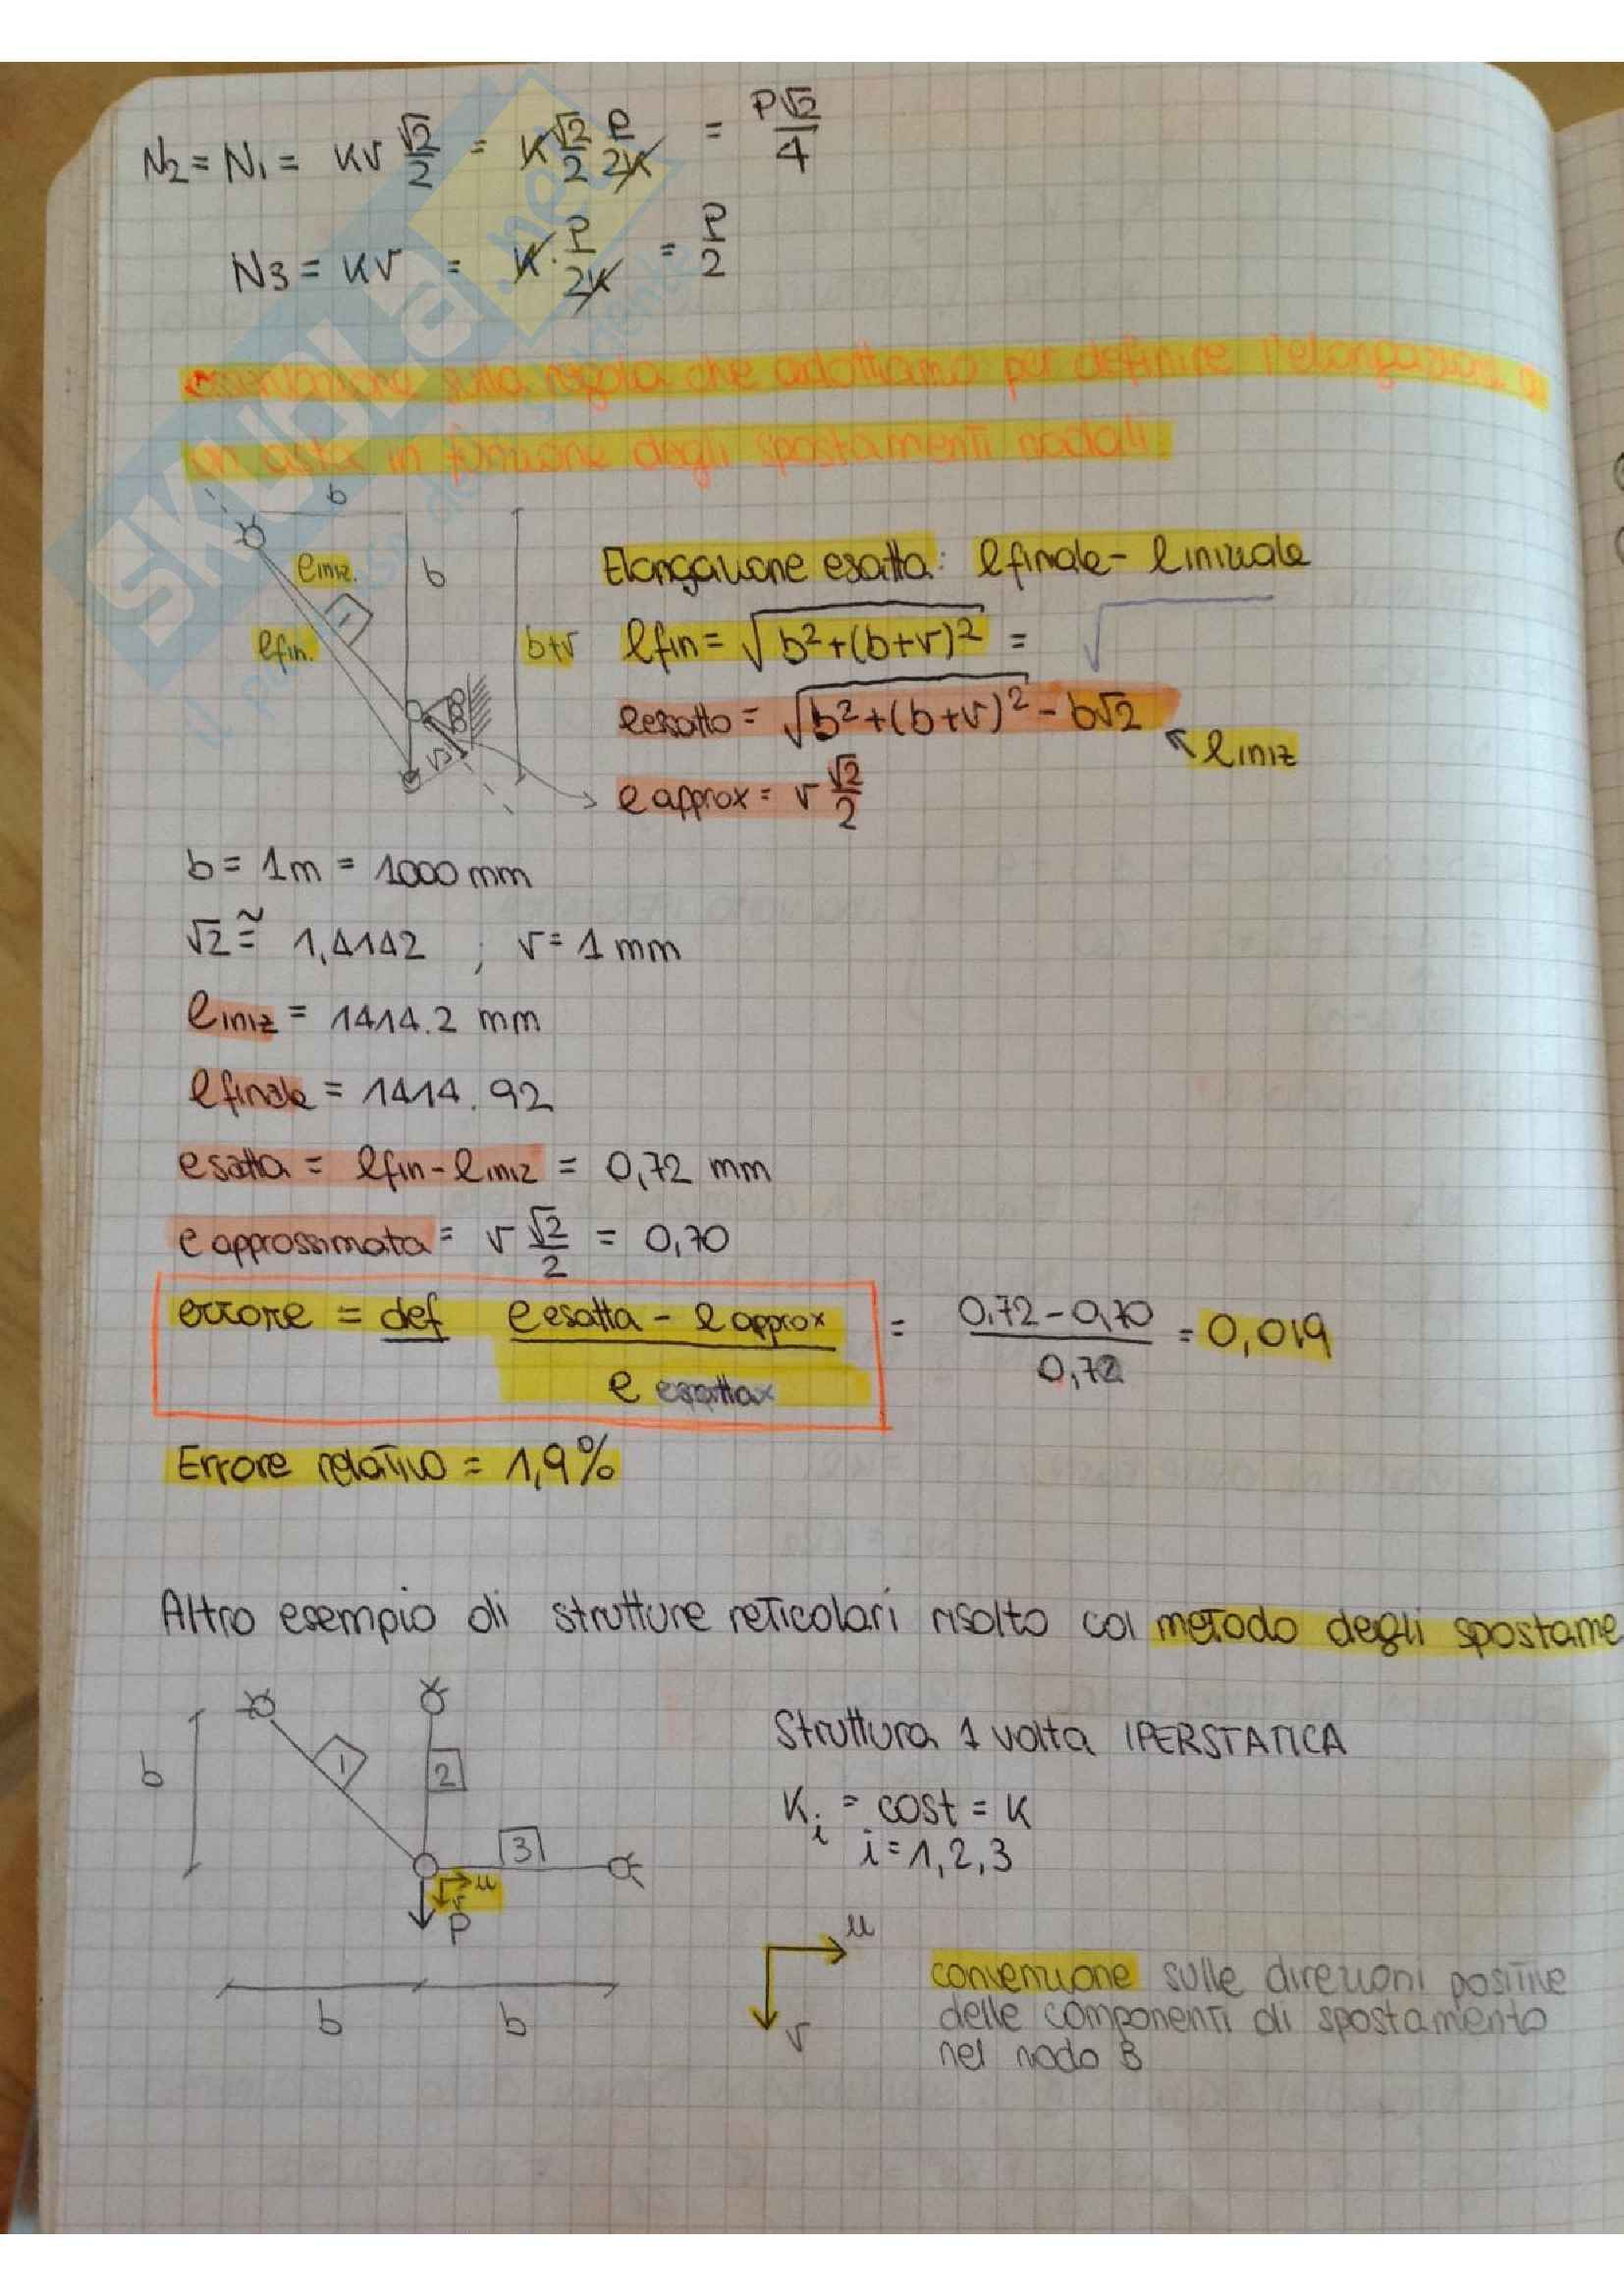 N2 = N1 = Kv √2/2 = K √2/2 P/2K = P√2/4
N3 = Kv = K · P/2K = P/2
osservazione sulla regola che adottiamo per definire l'elongazione di
un asta in funzione degli spostamenti nodali.
b
liniz.
b
1
lfin.
b+v
v√2/2
Elongazione esatta: lfinale - liniziale
lfin = √b²+(b+v)² = √
eesatto = √b²+(b+v)² - b√2
liniz
e approx = v √2/2
b = 1m = 1000 mm
√2 ≅ 1,4142 ; v = 1 mm
liniz = 1414.2 mm
lfinale = 1414.92
esatta = lfin - liniz = 0,72 mm
e approssimata = v √2/2 = 0,70
errore = def e esatta - e approx / e esatta = 0,72-0,70 / 0,72 = 0,019
Errore relativo = 1,9%
Altro esempio di strutture reticolari risolto col metodo degli spostame
b
1
2
3
u
v
P
b
b
Struttura 1 volta IPERSTATICA
Ki = cost = K
i = 1,2,3
u
v
convenzione sulle direzioni positive
delle componenti di spostamento
nel nodo B
SKUOLA.net